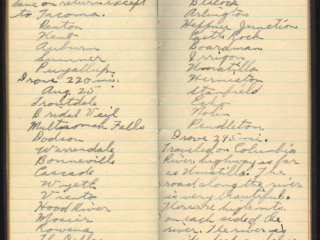 have on return except
to Tacoma.
Renton
Kent
Auburn
Sumner
Puyallup
Drove 220 mi.
Aug. 25
Troutdale
Bridal Veil
Multnomah Falls
Dodson
Warrendale
Bonneville
Cascade
Wyeth
Viento
Hood River
Mosier
Rowena
The Dalles
Blalock
Arlington
Heppner Junction
Castle Rock
Boardman
Irrigon
Umatilla
Hermiston
Stanfield
Echo
Nolin
Pendleton
Drove 245 mi.
Traveled on Columbia
River highway as far
as Umatilla. The
road along the river
is very beautiful.
There are high
on each side of
the river. The river is